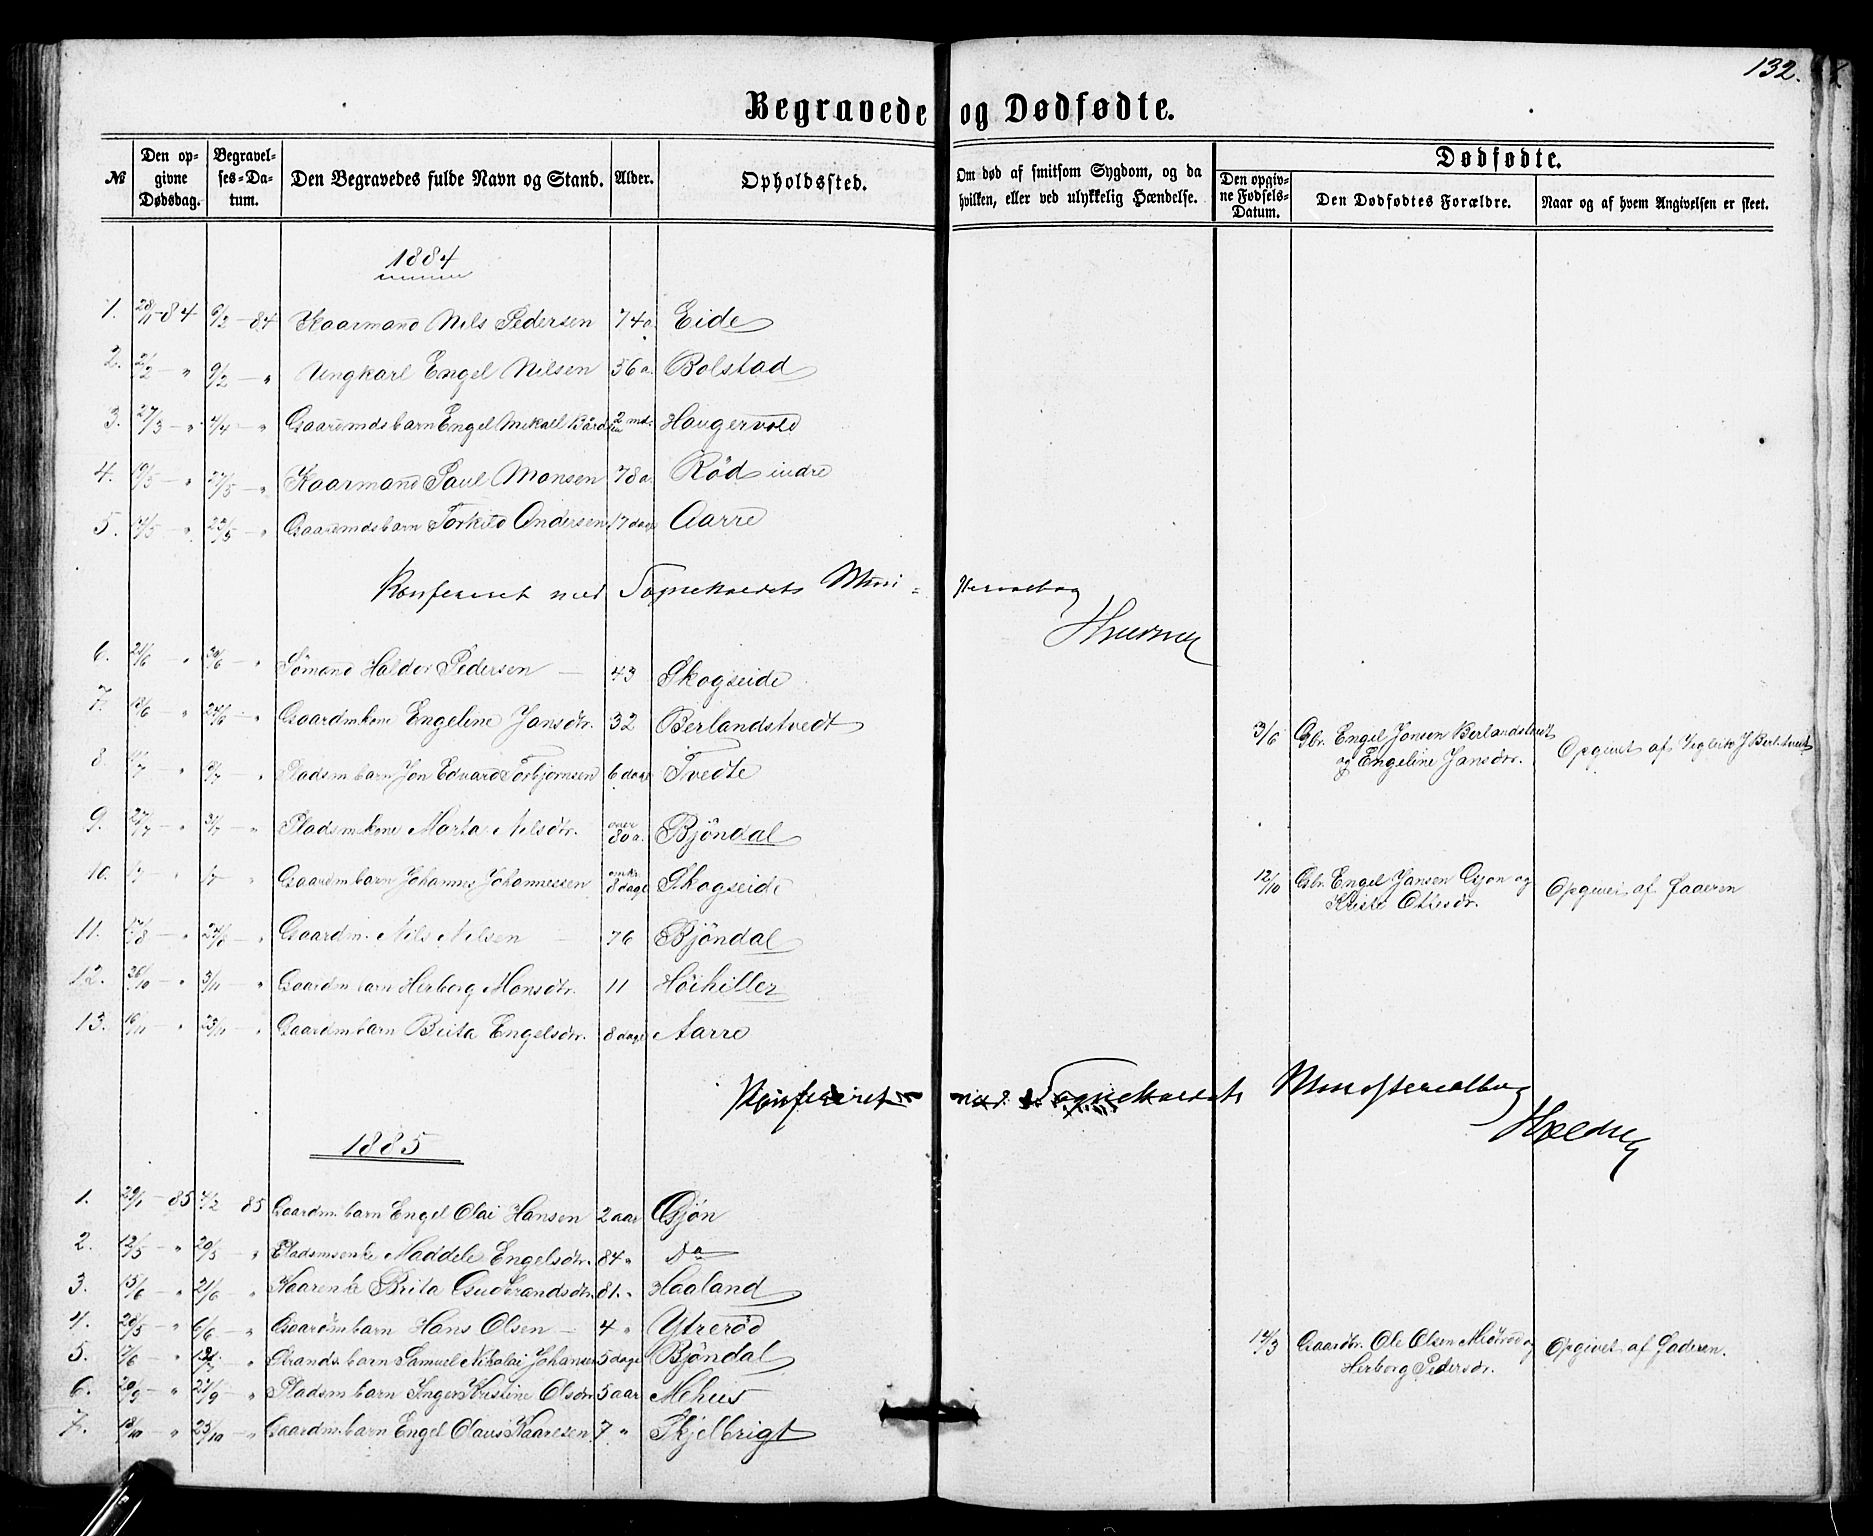 132.
Begravede og Dødfødte.
№
Den opgivne Dødsdag.
Begravelses-Datum.
Den Begravedes fulde Navn og Stand.
Alder.
Opholdssted.
Om død af smitsom Sygdom, og da hvilken, eller ved ulykkelig Hændelse.
Dødfødte.
Den opgivne Fødsels-Datum.
Den Dødfødtes Forældre.
Naar og af hvem Angivelsen er skeet.
1884
1. 28/1 - 84 6/2 - 84 Kaarmand Nils Pedersen 74 a. Eide
2. 2/2 - " 9/2 - " Ungkarl Engel Nilsen 56 a. Bolstad
3. 27/3 - " 4/4 - " Gaardmds barn Engel Mikael Bård 2 md. Haugervold
4. 19/5 - " 27/5 - " Kaarmand Paul Monsen 78 a. Röd indre
5. 14/5 - " 22/5 - " Gaardmdsbarn Torkild Andersen 17 dage Aarre
Konfereret med Sognekaldets Ministerialbog
6. 21/6 " 30/6 - " Sömand Haldor Pedersen - 43 Skogseide
7. 18/6 " 24/6 " Gaardmkone Engeline Jansdtr. 32 Berlandstvedt
3/6 Gbr. Engel Jansen Berlandstvedt og Engeline Jansdtr. Opgivet af
8. " /7 " Pladsm barn Jon Edvard Torbjornsen 6 dage Tvedte
9. 27/7 - " 31/7 - " Pladsmkone Marta Nilsdtr. over 80 a. Bjöndal
10. " Gaardmbarn Johannes Johannessen omkr. 8 dage Skogseide
12/10 Gbr. Engel Jansen Gjøn og Kristi Ottesdr. Opgivet af Faderen
11. 17/8 - " 24/8 - " Gaardm. Nils Nilsen - 76 Bjöndal
12. 26/10 - " 3/11 - " Gaardm barn Herborg Monsdtr. 11 Höihiller
13. 16/11 " 23/11 " Gaardmbarn Brita Engelsdtr. 8 dage Aarre
Konfereret med Sognekaldets Ministerialbog
1885
1. 29/1 - 85 4/2 85 Gaardm. barn Engel Olai Hansen 2 aar Gjön
2. 12/5 " 20/5 - " Pladsmenke Maddele Engelsdtr. 84 " Do
3. 15/6 " 21/6 - " Kaarenke Brita Gudbrandsdtr. 81. " Haaland
4. 28/5 - " 6/6 - " Gaardmbarn Hans Olsen - 4 " Ytreröd
14/3 Gaardbr. Ole Olsen Midtröd og Herborg Pedersdr. Opgivet af Faderen.
5. 7/6 - " " Strands. barn Samuel Nikolai Johansen 5 dage Bjöndal
6. 20/9 - " 27/9 - " Pladsm barn Inger Kristine Olsdtr 5 aar Mehus
7. 18/10 - " 25/10 - " Gaardm. barn Engel Olaus Kaaresen 7 " Skjelbrigt